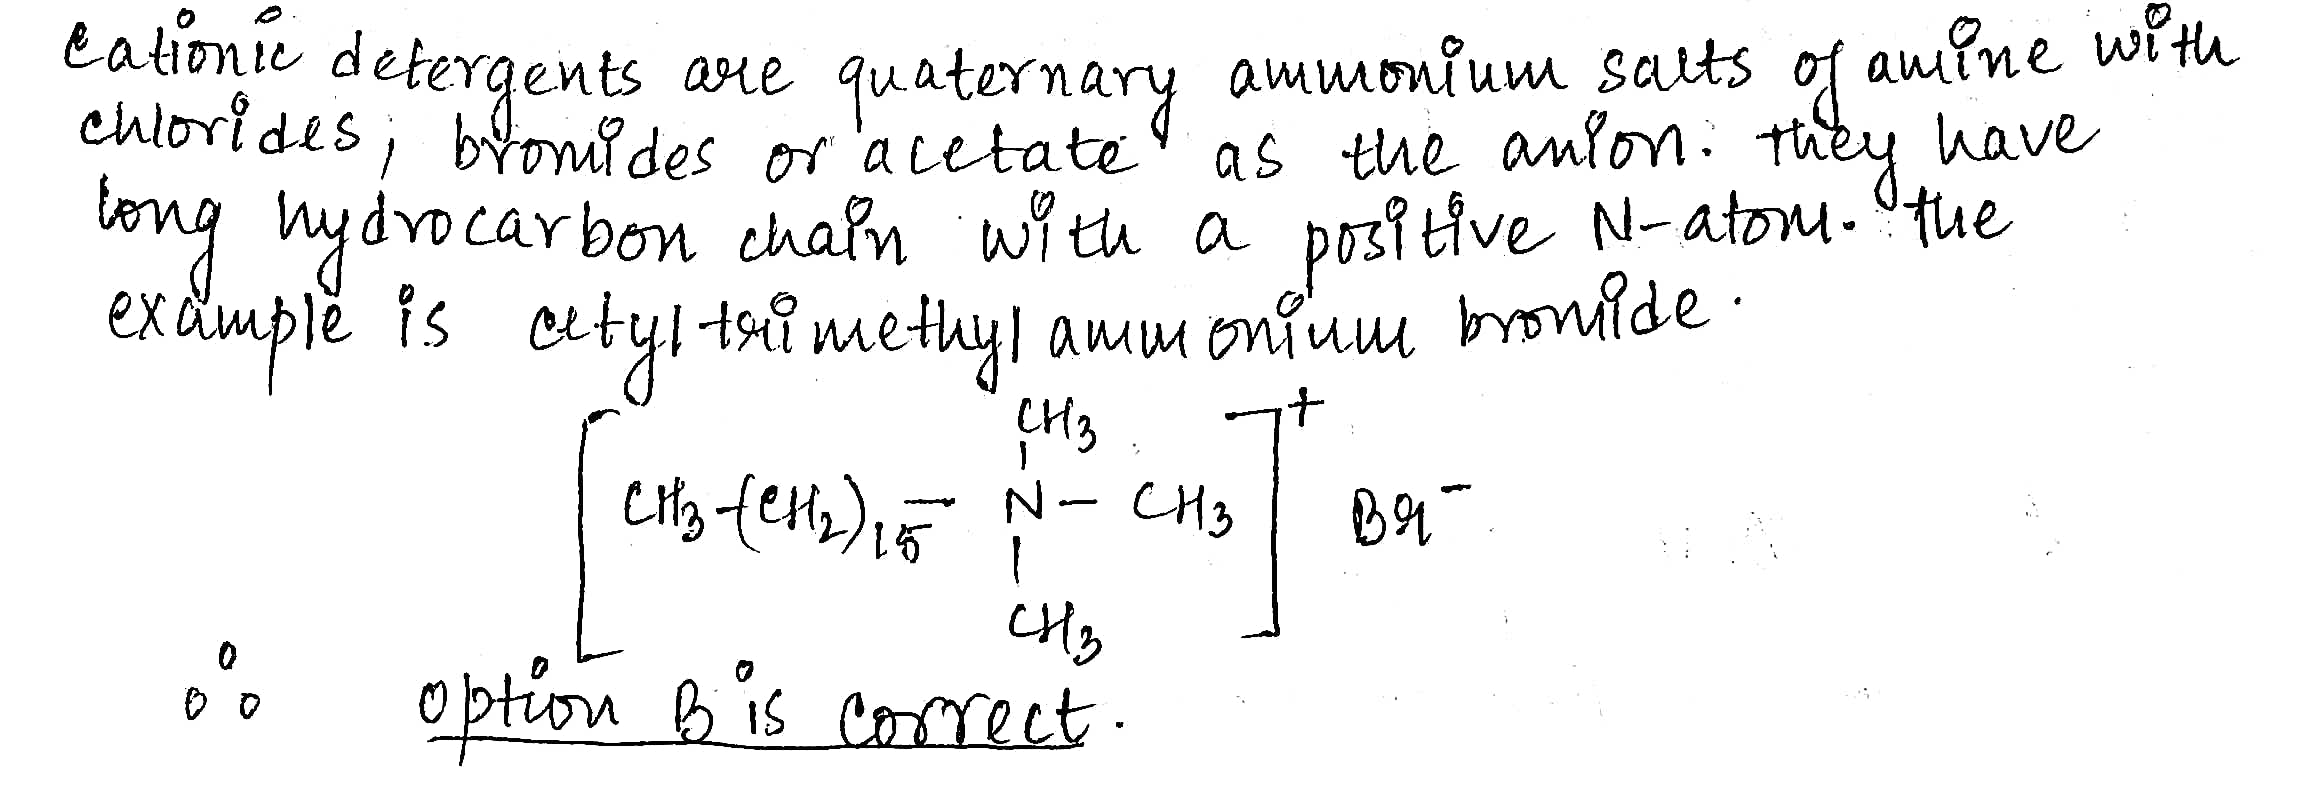 Cationic detergents are quaternary ammonium salts of amine with
chlorides, bromides or acetate as the anion. They have
long hydrocarbon chain with a positive N-atom. The
example is cetyltrimethylammonium bromide.
CH3 ]+
[CH3-(CH2)15 - N - CH3 Br-
CH3
∴ option B is correct.